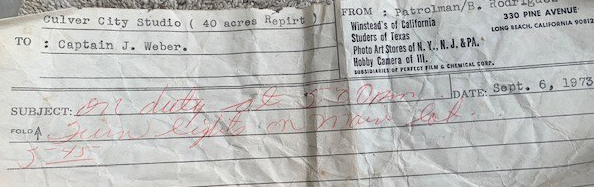 Culver City Studio ( 40 acres Repirt )
FROM : Patrolman/B. Rodrigue
TO : Captain J. Weber.
Winstead's of California
Studers of Texas
Photo Art Stores of N. Y., N. J. & PA.
Hobby Camera of Ill.
SUBSIDIARIES OF PERFECT FILM & CHEMICAL CORP.
330 PINE AVENUE
LONG BEACH, CALIFORNIA 90812
DATE: Sept. 6, 1973
SUBJECT: on duty at
FOLD Turn lights on lot.